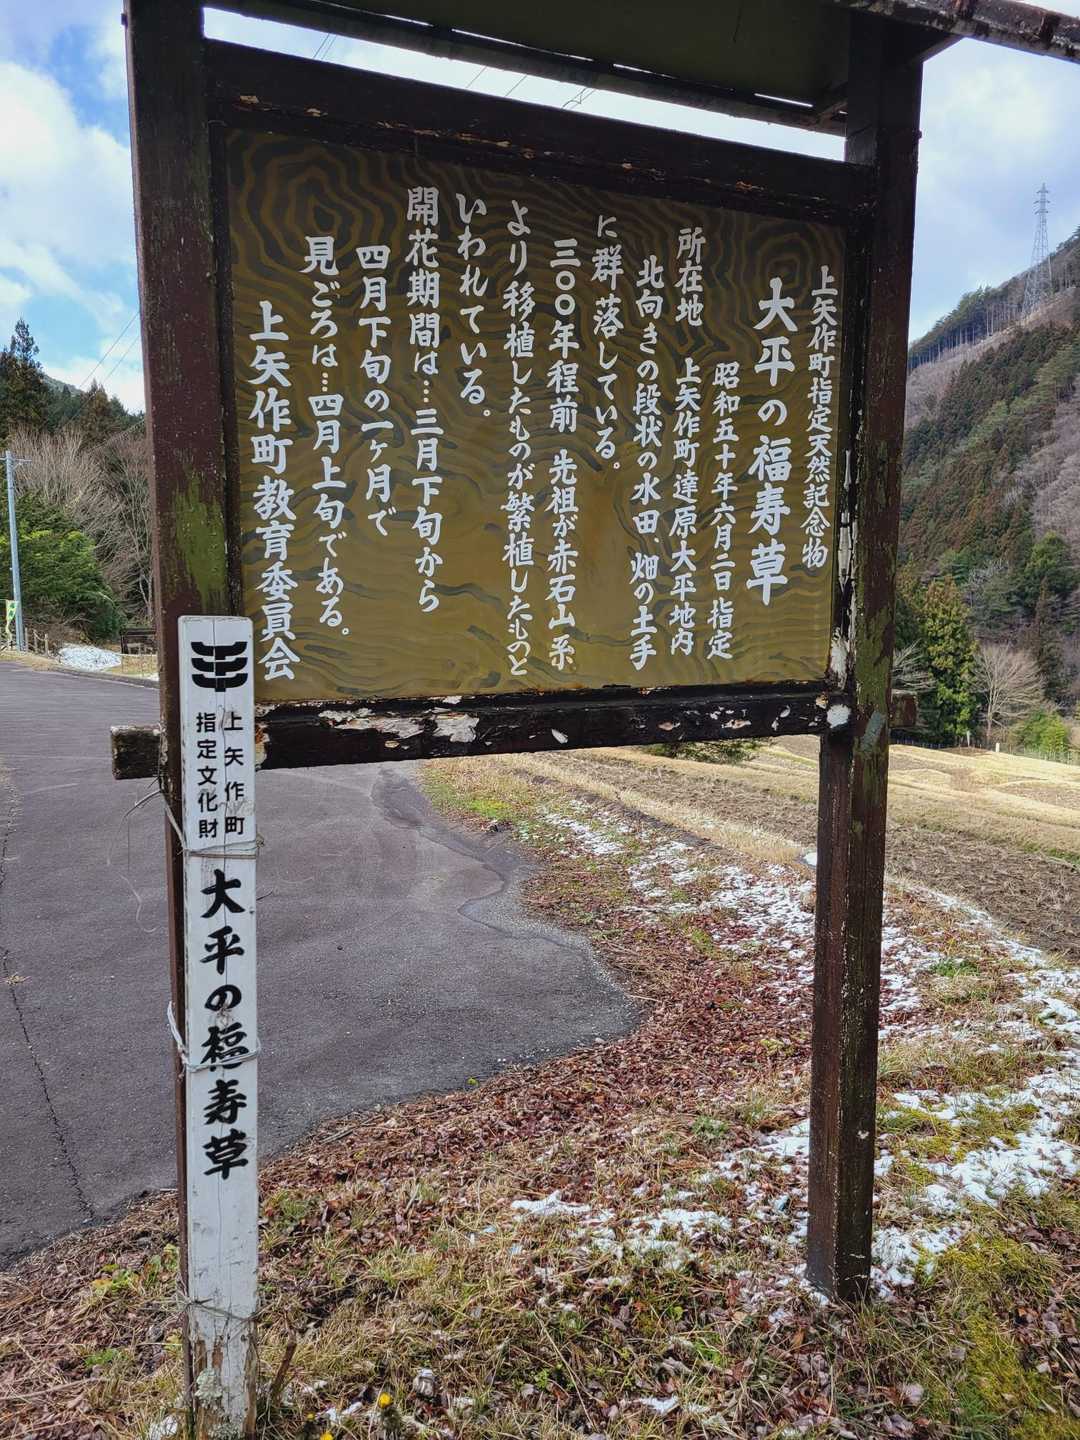 上矢作町指定天然記念物
大平の福寿草
昭和五十年六月二日指定
所在地　上矢作町達原大平地内
北向きの段状の水田　畑の土手
に群落している。
三〇〇年程前　先祖が赤石山系
より移植したものが繁植したものと
いわれている。
開花期間は…三月下旬から
四月下旬の一ヶ月で
見ごろは…四月上旬である。
上矢作町教育委員会
上矢作町
指定文化財
大平の福寿草